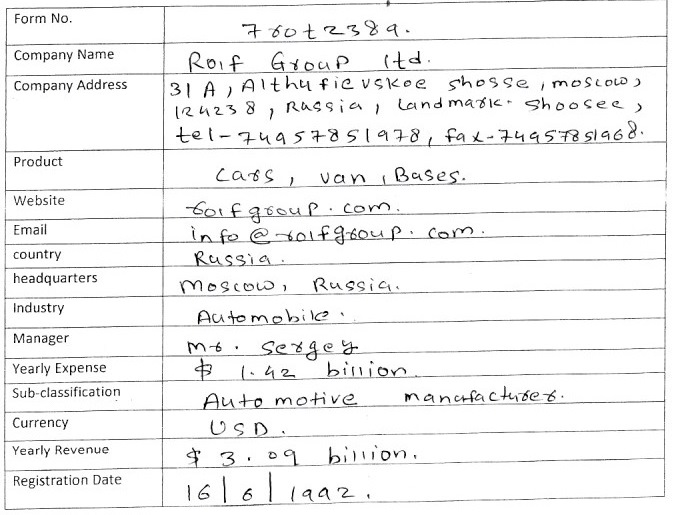 Form No. 760t2389.
Company Name Rolf Group ltd.
Company Address 31 A, Althufievskoe shosse, moscow,
124238, Russia, Landmark. Shoosee,
tel-74957851978, fax-74957851968.
Product Cars, van, Bases.
Website rolfgroup.com.
Email info@rolfgroup.com.
country Russia.
headquarters Moscow, Russia.
Industry Automobile.
Manager Mr. Sergey
Yearly Expense $ 1.42 billion
Sub-classification Automotive manufacturer.
Currency USD.
Yearly Revenue $ 3.09 billion.
Registration Date 16|6|1992.